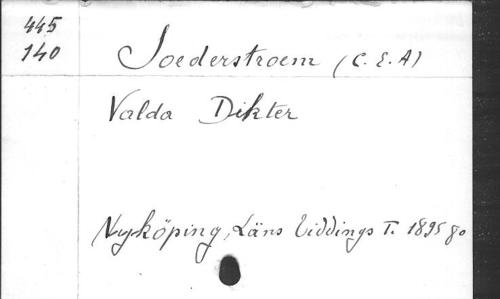 445
140
Soederstroem (C. E. A)
Valda Dikter
Nyköping, Läns Tiddings T. 1895 8o